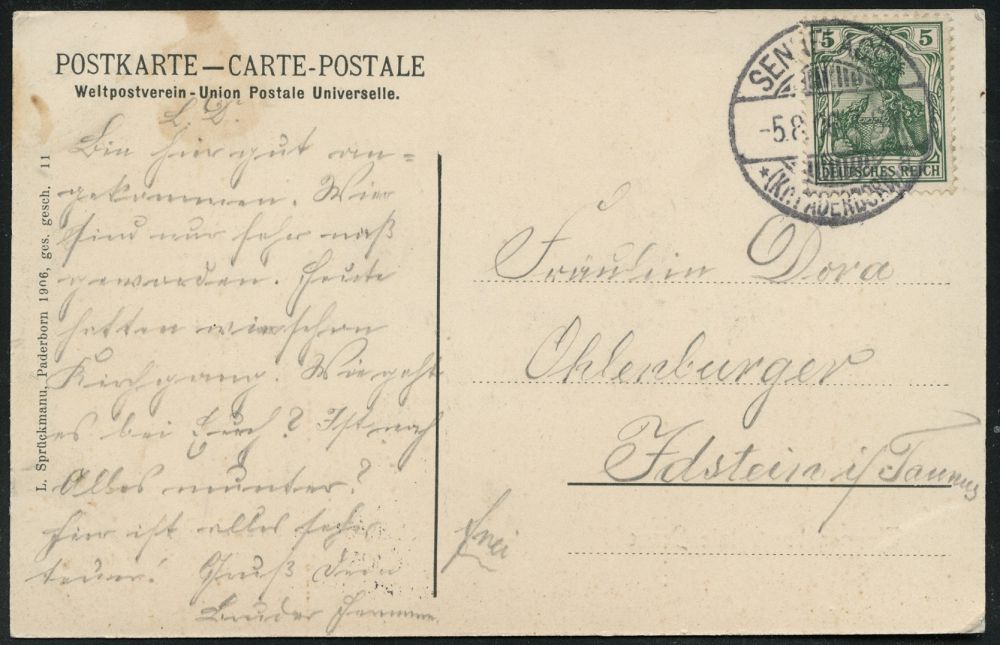 POSTKARTE — CARTE-POSTALE
Weltpostverein - Union Postale Universelle.
L. D.
Bin hier gut an=
gekommen. Wir
sind nur sehr naß
geworden. Heute
hatten wir schon
Kirchgang. Wie geht
es bei Euch? Ist noch
Alles munter?
Hier ist alles sehr
teuer! Gruß Dein
Bruder
L. Sprückmann, Paderborn 1906, ges. gesch. 11
5 5
DEUTSCHES REICH
SENNELAGER
-5.8.
* (Kr. PADERBORN)
Fräulein Dora
Ohlenburger
Idstein i/Taunus
frei